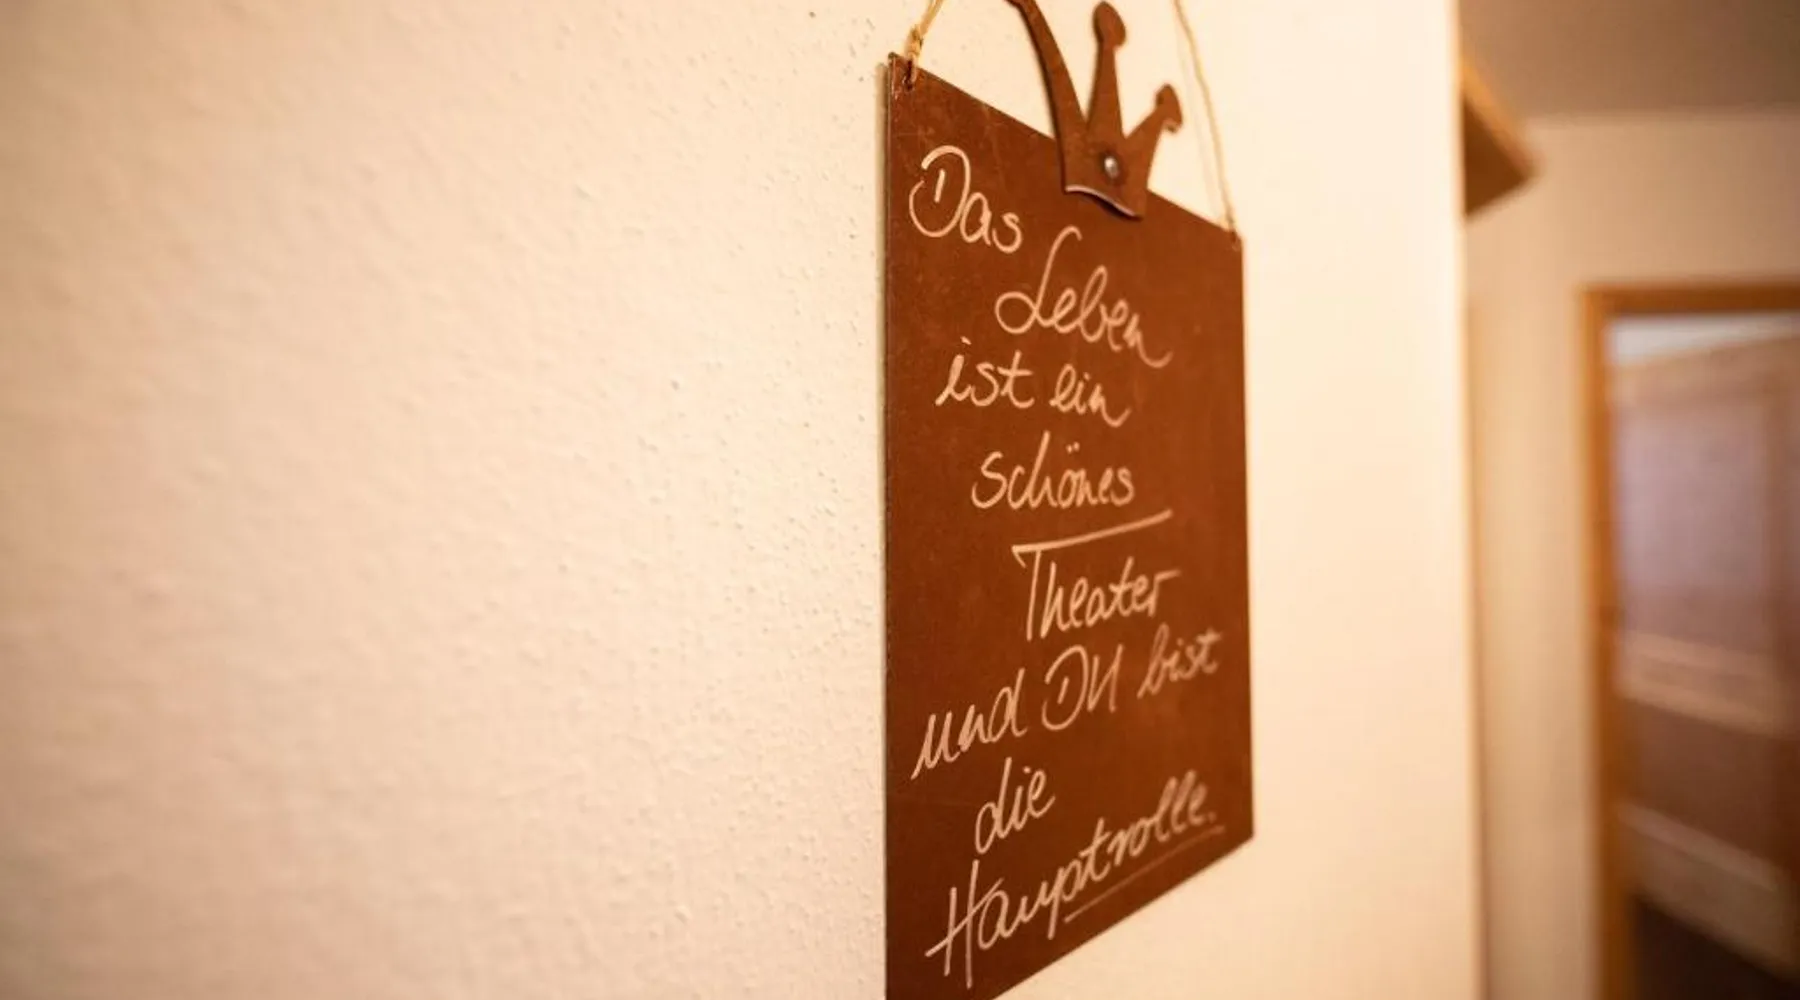 Das
Leben
ist ein
schönes
Theater
und DU bist
die
Hauptrolle.